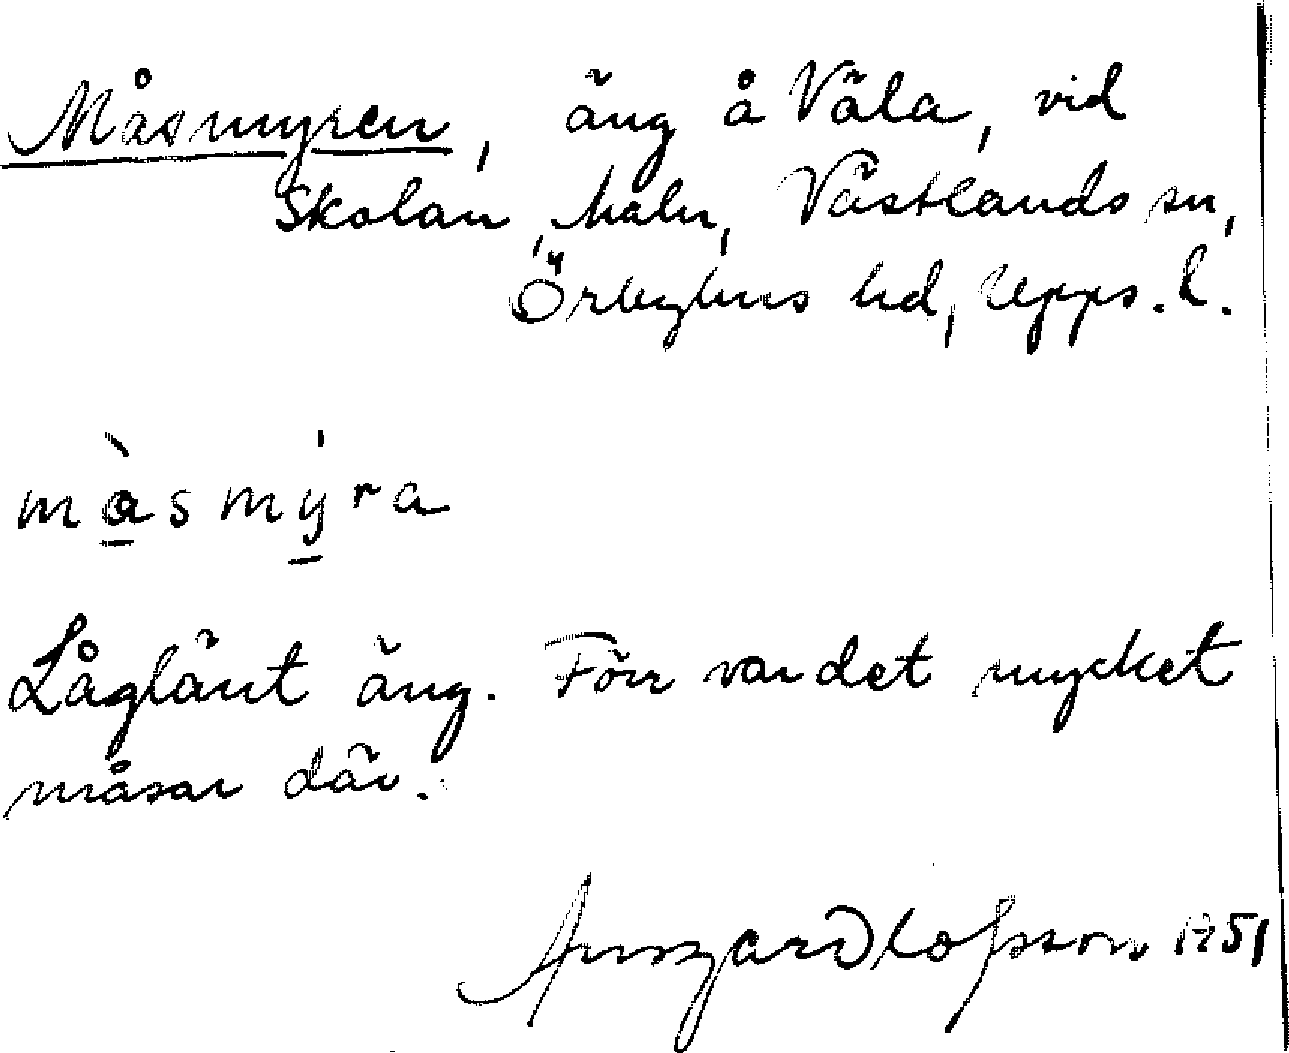 Måsmyren, äng å Väla, vid
Skolan, Malm, Västlands sn,
Örbyhus hd, Upps. l.
màsmýra
Låglänt äng. Förr var det mycket
måsar där.
Ansgar Olofsson 1951